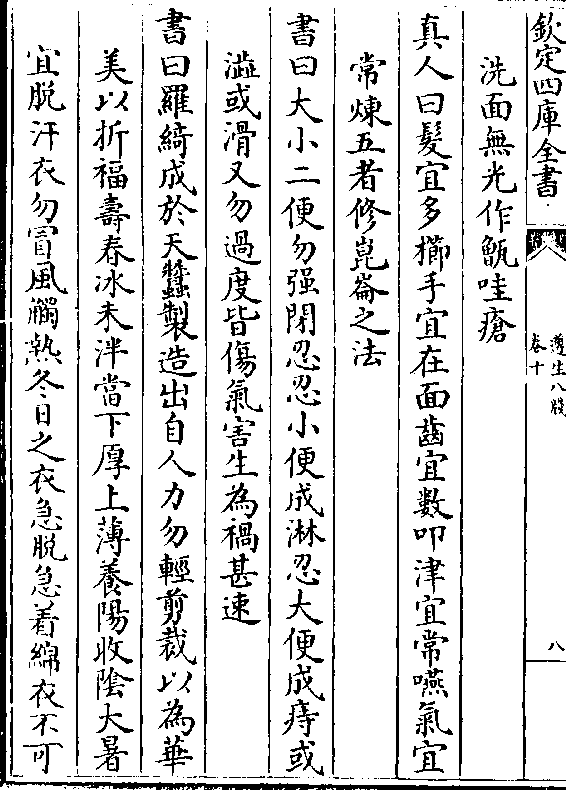 欽定四庫全書
遵生八牋
卷十
八
洗面無光作甑哇瘡
真人曰髮宜多櫛手宜在面齒宜數叩津宜常嚥氣宜
常煉五者修崑崙之法
書曰大小二便勿强閉忍忍小便成淋忍大便成痔或
澁或滑又勿過度皆傷氣害生為禍甚速
書曰羅綺成於天蠶製造出自人力勿輕剪裁以為華
美以折福壽春冰未泮當下厚上薄養陽收陰大暑
宜脱汗衣勿冒風觸熱冬日之衣急脱急着綿衣不可